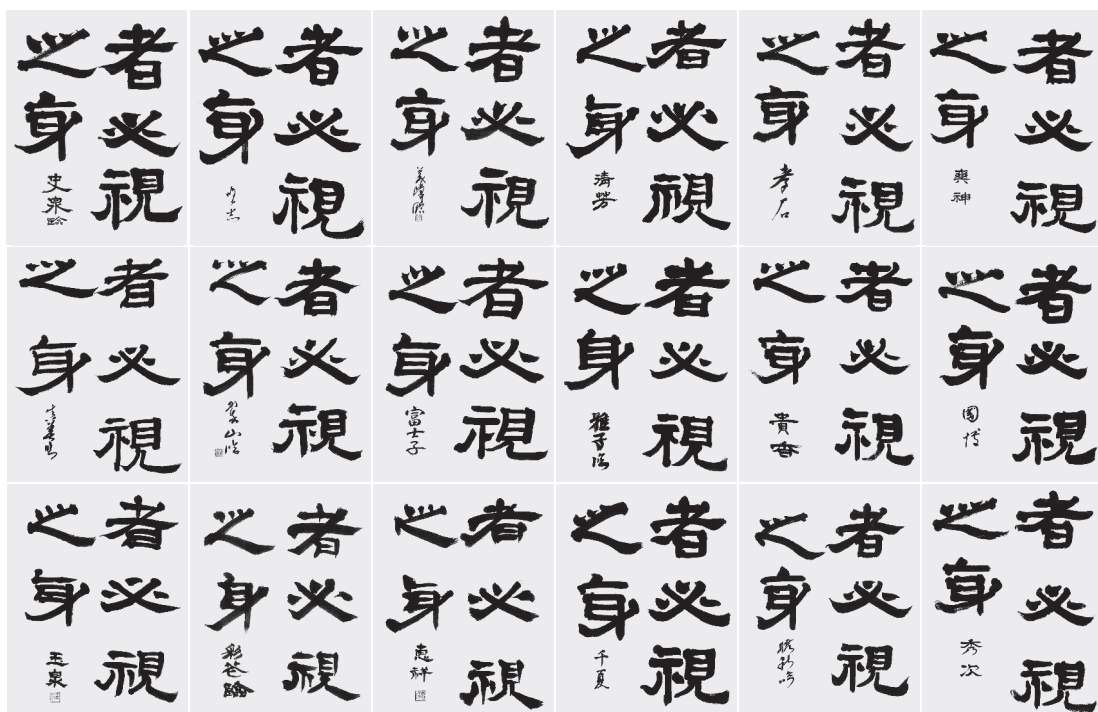 者必視
之身
史泉臨
者必視
之身
者必視
之身
者必視
之身
清芳
者必視
之身
孝石
者必視
之身
爽神
者必視
之身
者必視
之身
者必視
之身
富士子
者必視
之身
雅子臨
者必視
之身
貴香
者必視
之身
者必視
之身
玉泉
者必視
之身
者必視
之身
恵祥
者必視
之身
千夏
者必視
之身
者必視
之身
秀次